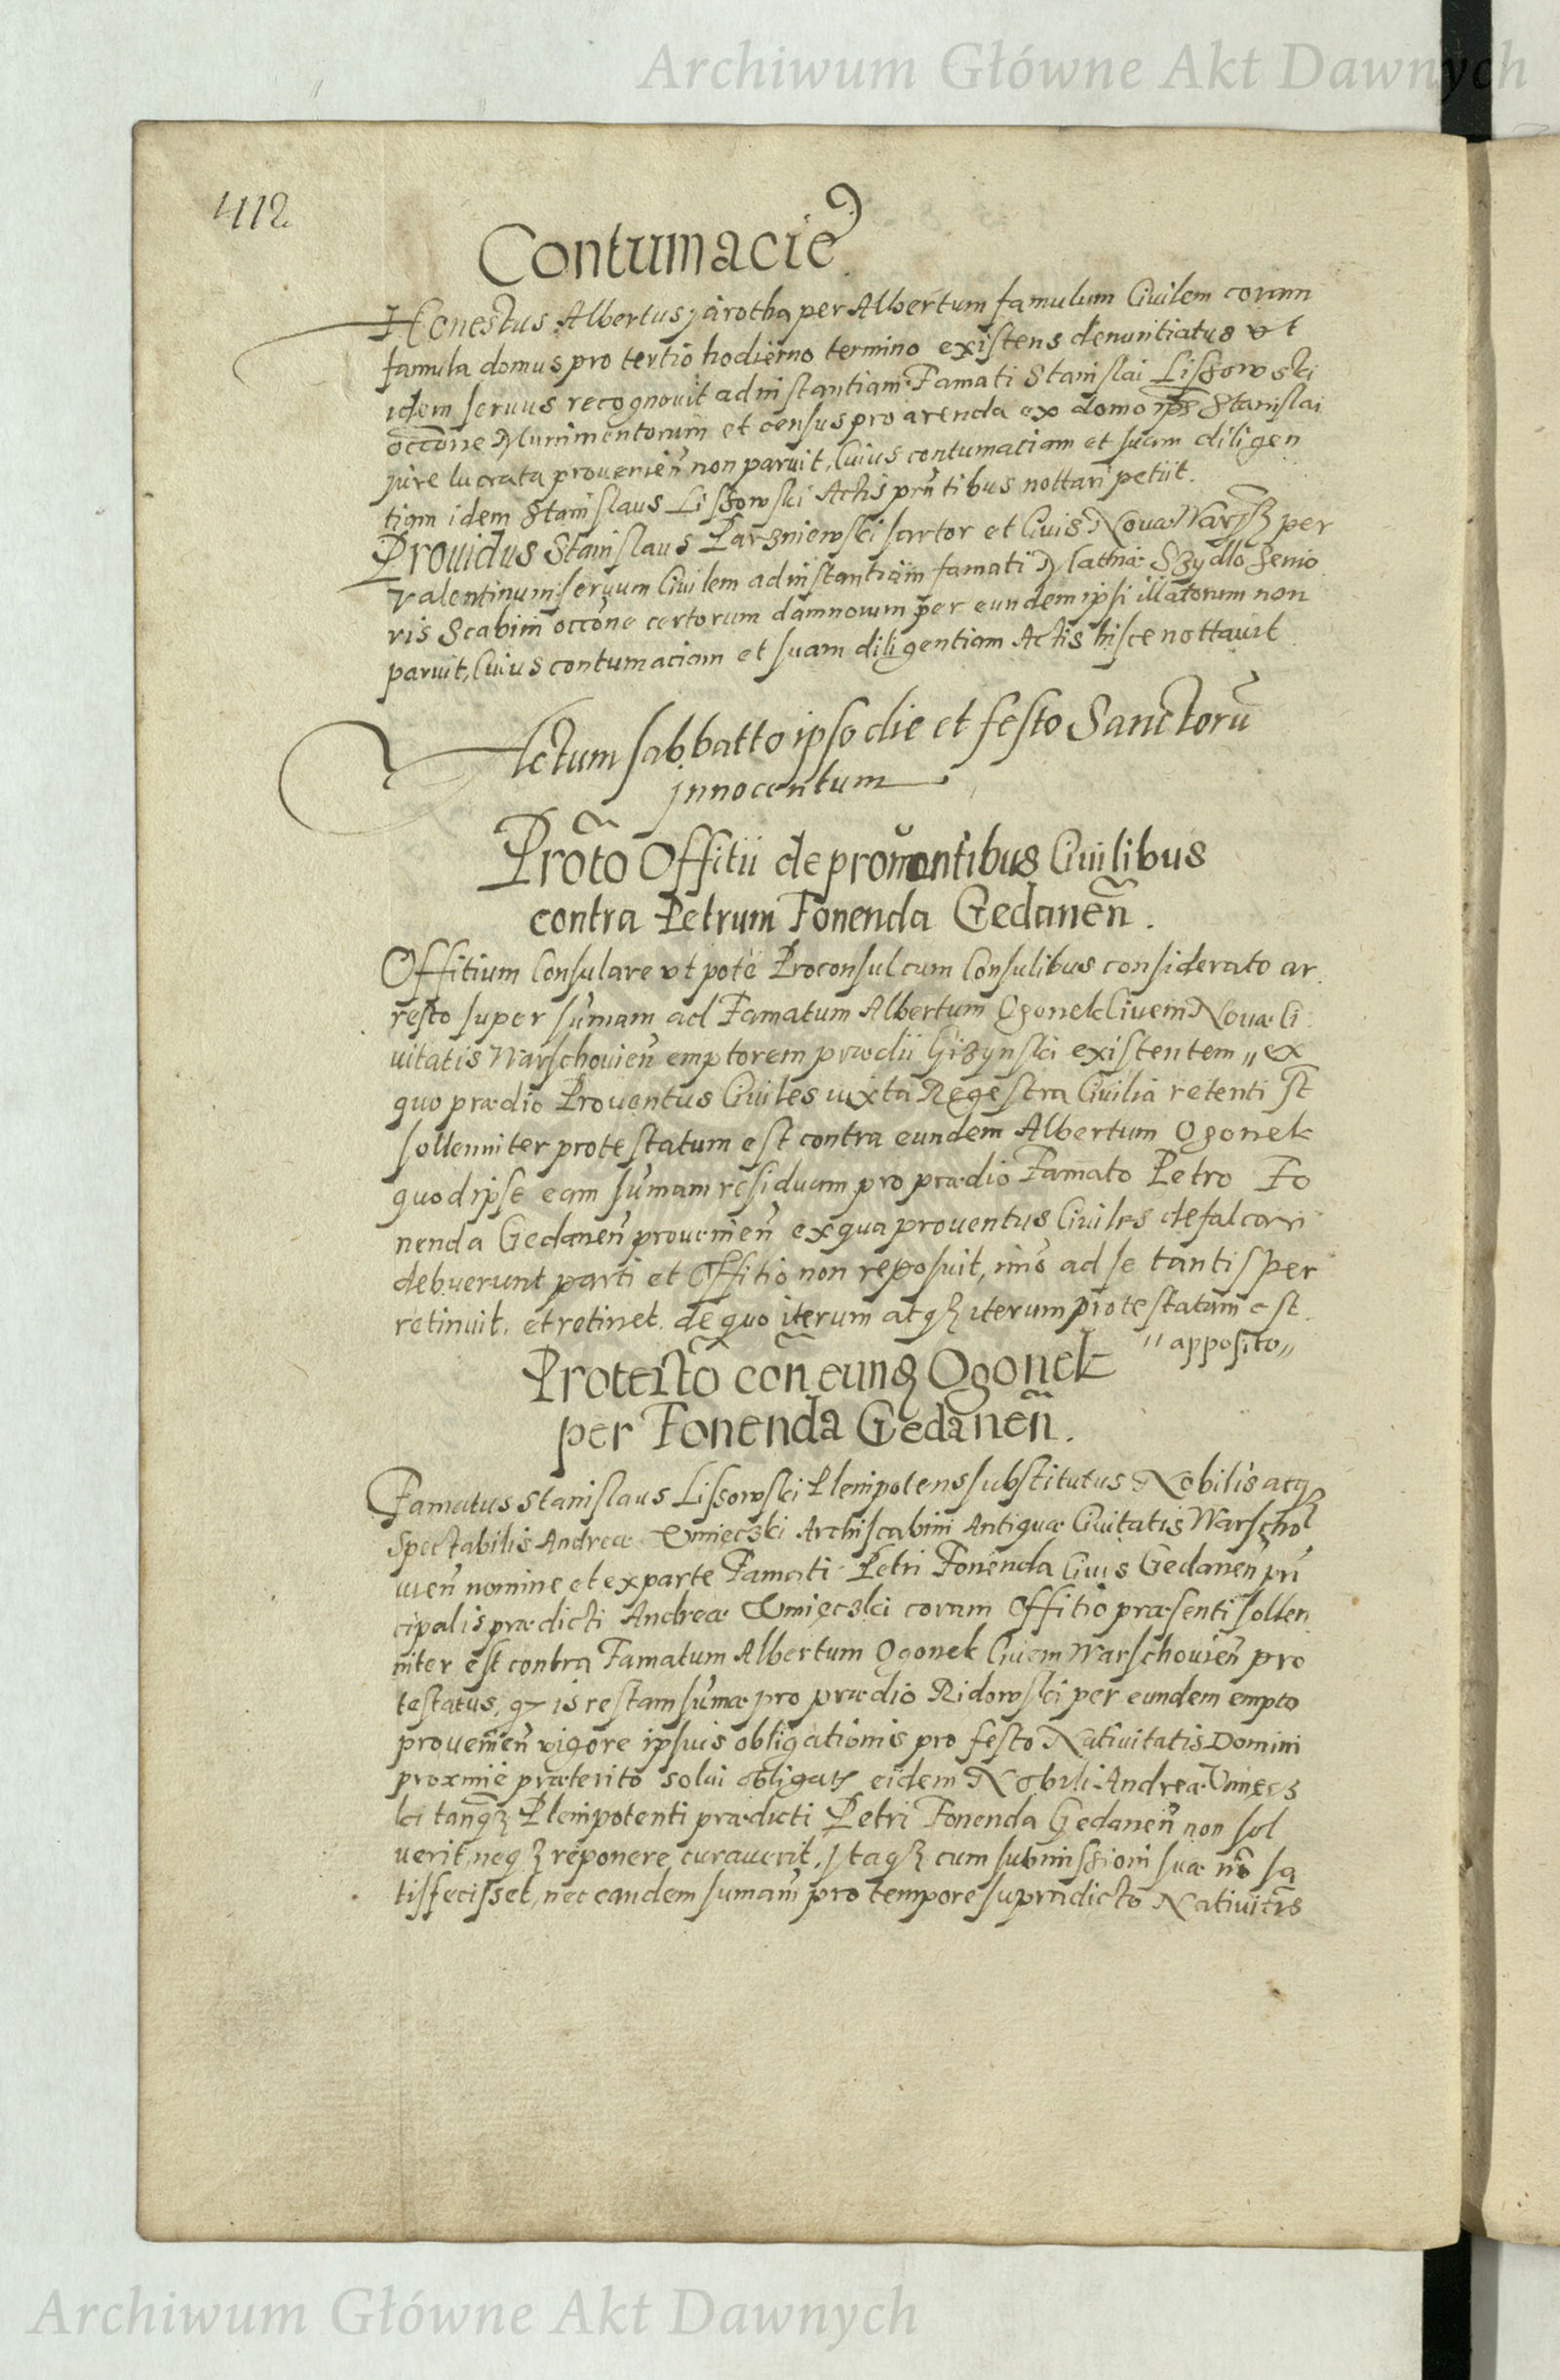 Archiwum Główne Akt Dawnych
412
Contumacie
Honestus Albertus Jarotha per Albertum famulum Civilem coram
famula domus pro tertio hodierno termino existens denuntiatus vt
idem servus recognovit ad instantiam Famati Stanislai Lissowski
occōne Munimentorum et census pro arenda ex domo ips̄ Stanislai
jure lucrata provenien̄ non paruit, Cuius contumaciam et suam diligen
tiam idem Stanislaus Lissowski Actis pr̄ntibus nottari petiit.
Providus Stanislaus Parzniewski sartor et Civis Novæ Warsz per
Valentinum servum Civilem ad instantiam famati Mathiæ Szydlo Senio
ris Scabini occōne certorum damnorum per eundem ipsi illatorum non
paruit, Cuius contumaciam et suam diligentiam Actis hisce nottavit
Actum sabbatto ipso die et festo Sanctorū
Innocentum
Prōto Offitii de proventibus Civilibus
contra Petrum Fonenda Gedanen̄.
Offitium Consulare vt pote Proconsul cum Consulibus considerato ar
resto super sum̄am ad Famatum Albertum Ogonek Civem Novæ Ci
vitatis Warschovien̄ emptorem prædii Gizynski existentem „ ex
quo prædio Proventus Civiles iuxta Regestra Civilia retenti st̄
sollenniter protestatum est contra eundem Albertum Ogonek
quod ipse eam sum̄am residuam pro prædio Famato Petro Fo
nenda Gedanen̄ provenien̄ ex qua proventus Civiles defalcari
debuerunt parti et Offitio non reposuit, im̄o ad se tantisper
retinuit, et retinet. de quo iterum atq₃ iterum protestatum est.
„ apposito „
Protestōo con̄ eund₃ Ogonek
per Fonenda Gedanen̄.
Famatus Stanislaus Lissowski Plenipotens substitutus Nobilis atq₃
Spectabilis Andreæ Vmięczki Archiscabini Antiquæ Civitatis Warscho
vien̄ nomine et ex parte Famati Petri Fonenda Civis Gedanen̄ prin̄
cipalis prædicti Andreæ Vmięczki coram Offitio præsenti sollen
niter est contra Famatum Albertum Ogonek Civem Warschovien̄ pro
testatus, q₇ is restam sum̄æ pro prædio Ridowski per eundem empto
provenien̄ vigore ipsius obligationis pro festo Nativitatis Domini
proxime præterito solvi obligatꝭ eidem Nobili Andreæ Vmięcz
ki tanq₃ Plenipotenti prædicti Petri Fonenda Gedanen̄ non sol
verit, neq₃ reponere curaverit, Itaq₃ cum submissioni suæ nō sa
tisfecisset, nec eandem sum̄am pro tempore supradicto Nativitīs
Archiwum Główne Akt Dawnych